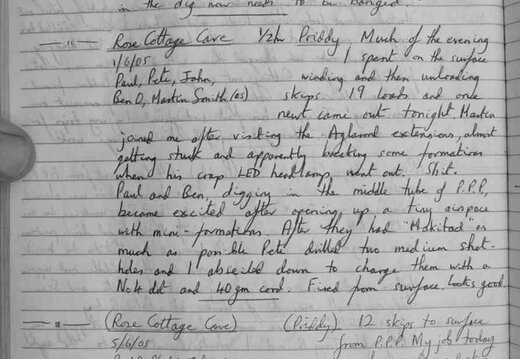 in the dig now needs to be banged.
— " — Rose Cottage Cave 1/2hr Priddy Much of the evening
1/6/05 I spent on the surface
Paul, Pete, John, winding and then unloading
Ben O, Martin Smith (os) skips 19 loads and one
newt came out tonight Martin
joined me after visiting the Aglarond extensions, almost
getting stuck and apparently breaking some formations
when his crap LED headlamp went out. Shit.
Paul and Ben, digging in the middle tube of P.P.P,
became excited after opening up a tiny airspace
with mini-formations. After they had "Makitad" as
much as possible Pete drilled two medium shot-
holes and I abseiled down to charge them with a
No4 det and 40gm cord. Fired from surface. Looks good.
— " — (Rose Cottage Cave) (Priddy) 12 skips to surface
5/6/05 from P.P.P. My job today